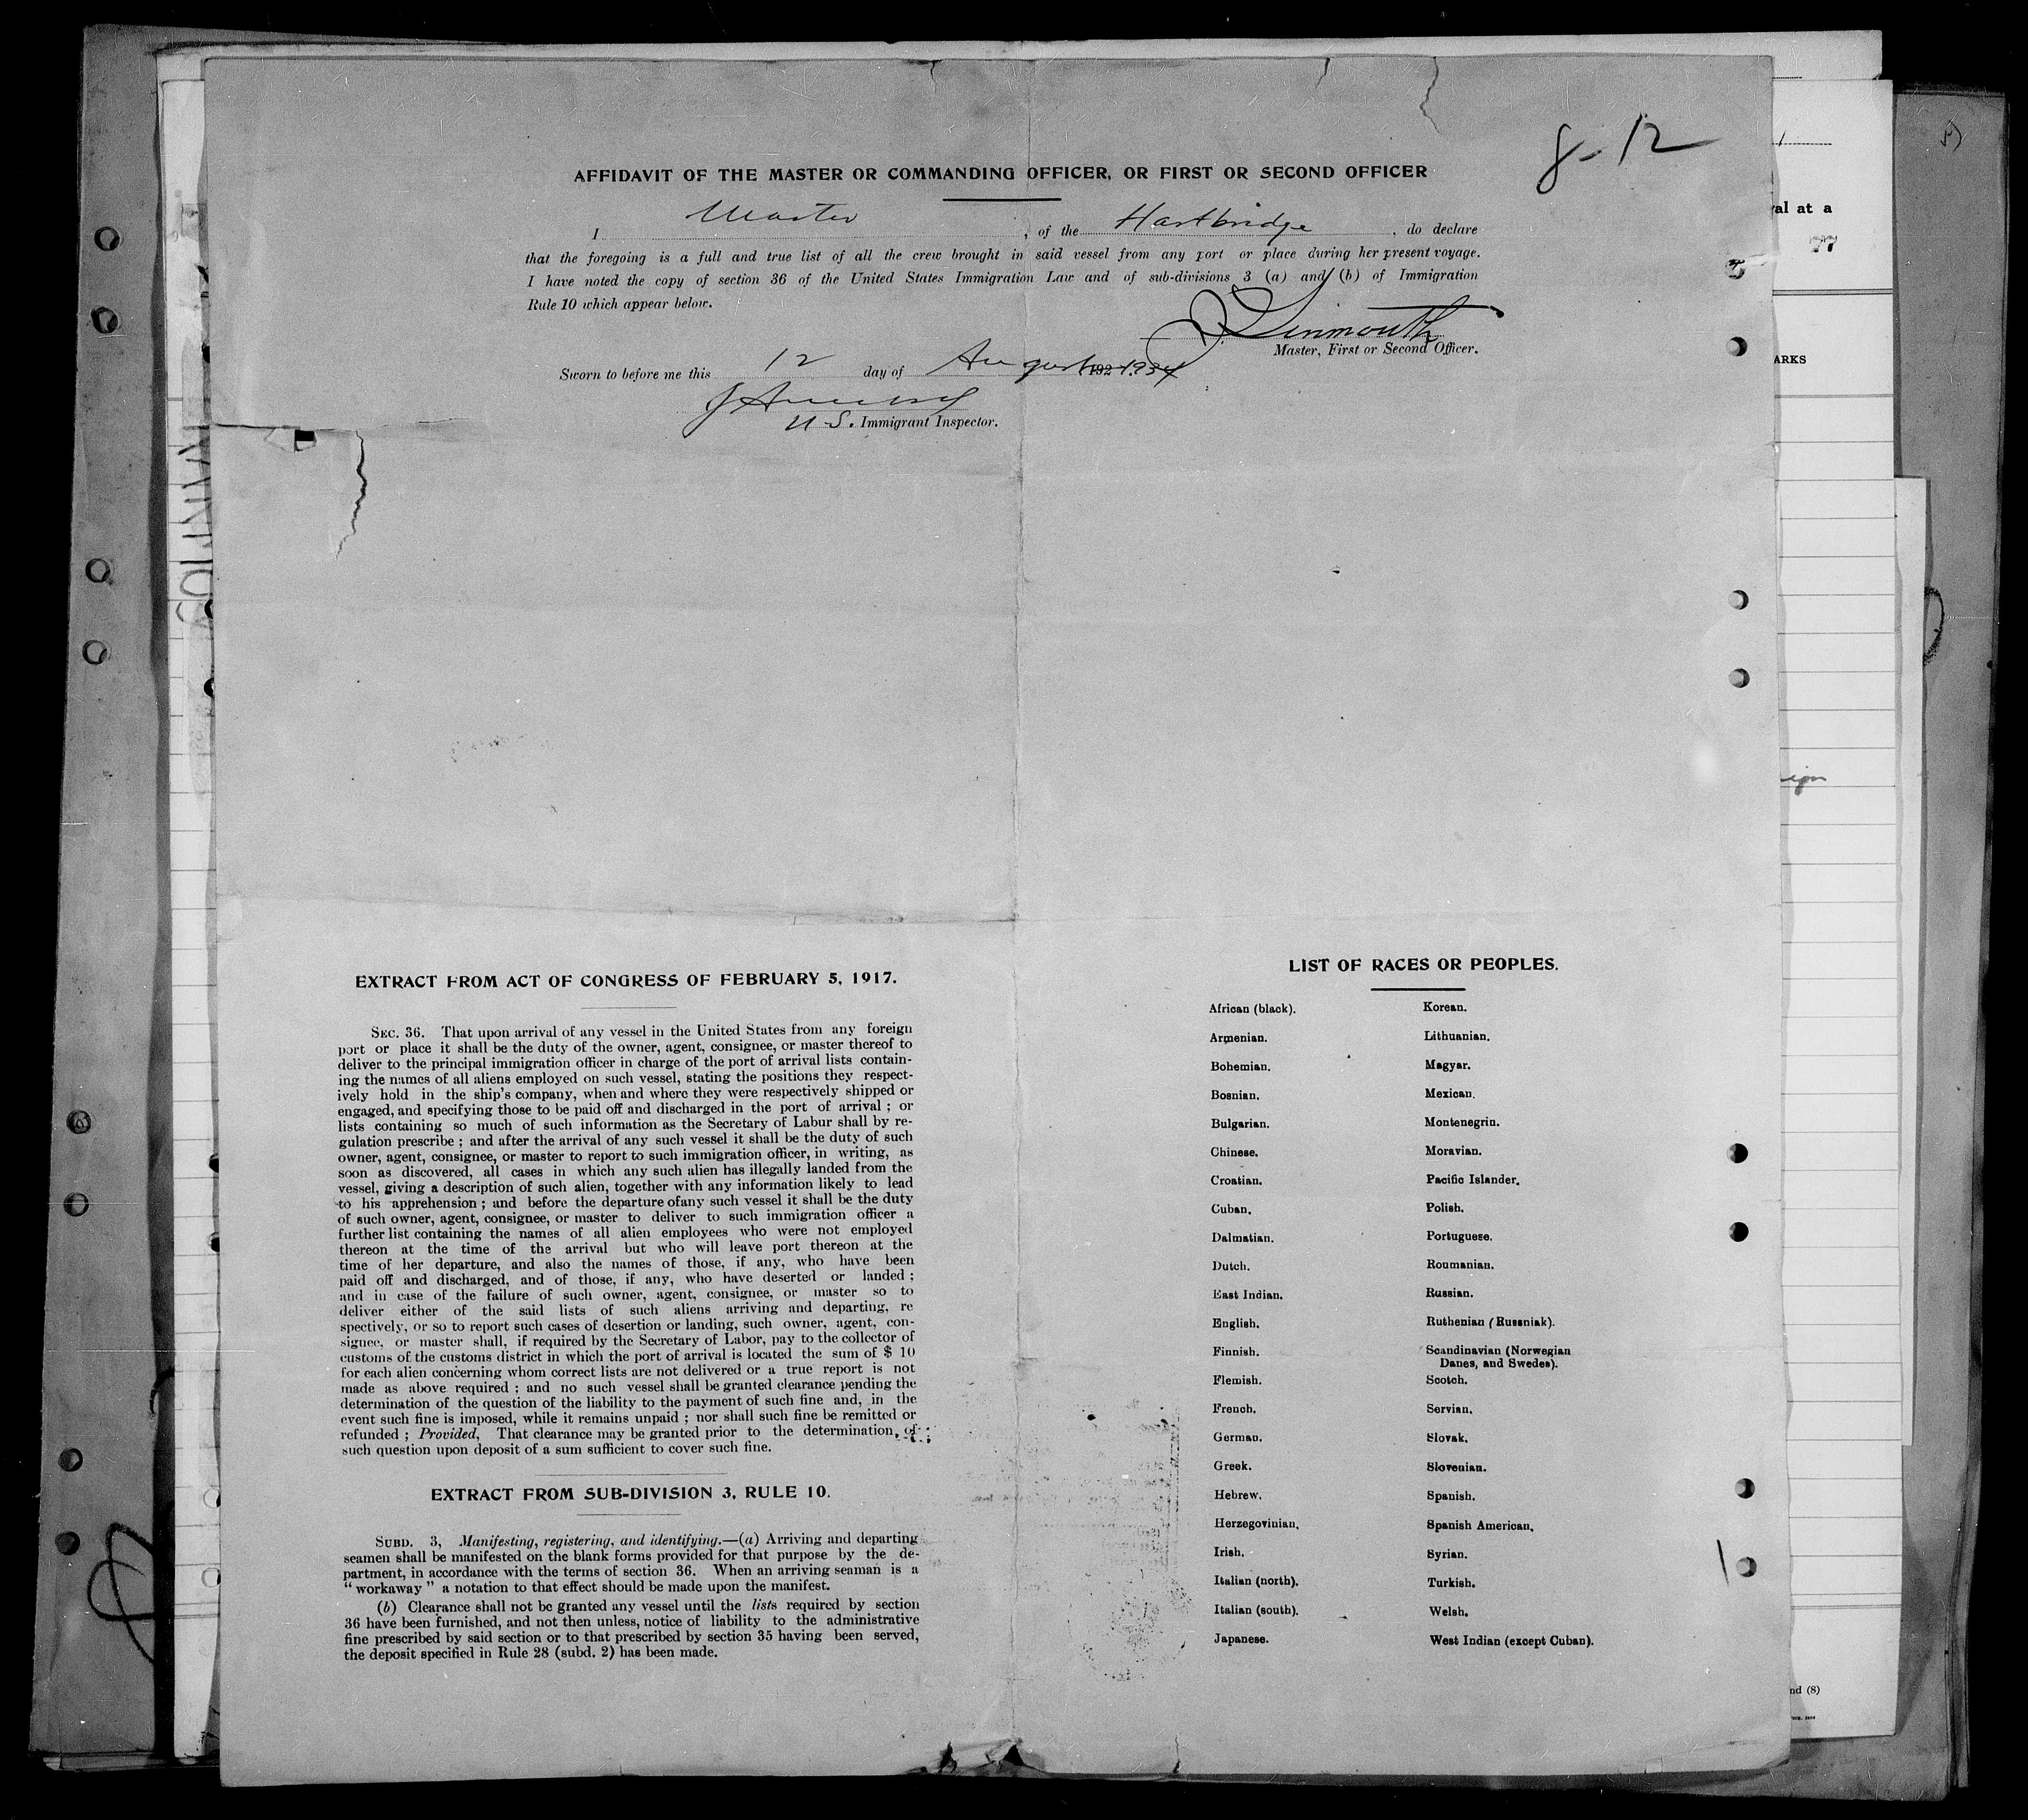 8-12
AFFIDAVIT OF THE MASTER OR COMMANDING OFFICER, OR FIRST OR SECOND OFFICER
I Master, of the Hartbridge, do declare
that the foregoing is a full and true list of all the crew brought in said vessel from any port or place during her present voyage.
I have noted the copy of section 36 of the United States Immigration Law and of sub-divisions 3 (a) and (b) of Immigration
Rule 10 which appear below.
Linmouth
Master, First or Second Officer.
Sworn to before me this 12 day of August 192 1934
U.S. Immigrant Inspector.
EXTRACT FROM ACT OF CONGRESS OF FEBRUARY 5, 1917.
SEC. 36. That upon arrival of any vessel in the United States from any foreign
port or place it shall be the duty of the owner, agent, consignee, or master thereof to
deliver to the principal immigration officer in charge of the port of arrival lists contain-
ing the names of all aliens employed on such vessel, stating the positions they respect-
ively hold in the ship's company, when and where they were respectively shipped or
engaged, and specifying those to be paid off and discharged in the port of arrival ; or
lists containing so much of such information as the Secretary of Labur shall by re-
gulation prescribe ; and after the arrival of any such vessel it shall be the duty of such
owner, agent, consignee, or master to report to such immigration officer, in writing, as
soon as discovered, all cases in which any such alien has illegally landed from the
vessel, giving a description of such alien, together with any information likely to lead
to his apprehension ; and before the departure ofany such vessel it shall be the duty
of such owner, agent, consignee, or master to deliver to such immigration officer a
further list containing the names of all alien employees who were not employed
thereon at the time of the arrival but who will leave port thereon at the
time of her departure, and also the names of those, if any, who have been
paid off and discharged, and of those, if any, who have deserted or landed ;
and in case of the failure of such owner, agent, consignee, or master so to
deliver either of the said lists of such aliens arriving and departing, re
spectively, or so to report such cases of desertion or landing, such owner, agent, con-
signee, or master shall, if required by the Secretary of Labor, pay to the collector of
customs of the customs district in which the port of arrival is located the sum of $ 10
for each alien concerning whom correct lists are not delivered or a true report is not
made as above required ; and no such vessel shall be granted clearance pending the
determination of the question of the liability to the payment of such fine and, in the
event such fine is imposed, while it remains unpaid ; nor shall such fine be remitted or
refunded ; Provided, That clearance may be granted prior to the determination, of
such question upon deposit of a sum sufficient to cover such fine.
EXTRACT FROM SUB-DIVISION 3, RULE 10.
SUBD. 3, Manifesting, registering, and identifying.—(a) Arriving and departing
seamen shall be manifested on the blank forms provided for that purpose by the de-
partment, in accordance with the terms of section 36. When an arriving seaman is a
“ workaway ” a notation to that effect should be made upon the manifest.
(b) Clearance shall not be granted any vessel until the lists required by section
36 have been furnished, and not then unless, notice of liability to the administrative
fine prescribed by said section or to that prescribed by section 35 having been served,
the deposit specified in Rule 28 (subd. 2) has been made.
LIST OF RACES OR PEOPLES.
African (black).
Armenian.
Bohemian.
Bosnian.
Bulgarian.
Chinese.
Croatian.
Cuban.
Dalmatian.
Dutch.
East Indian.
English.
Finnish.
Flemish.
French.
German.
Greek.
Hebrew.
Herzegovinian.
Irish.
Italian (north).
Italian (south).
Japanese.
Korean.
Lithuanian.
Magyar.
Mexican.
Montenegrin.
Moravian.
Pacific Islander.
Polish.
Portuguese.
Roumanian.
Russian.
Ruthenian (Russniak).
Scandinavian (Norwegian
Danes, and Swedes).
Scotch.
Servian.
Slovak.
Slovenian.
Spanish.
Spanish American.
Syrian.
Turkish.
Welsh.
West Indian (except Cuban).
val at a
77
ARKS
nd (8)